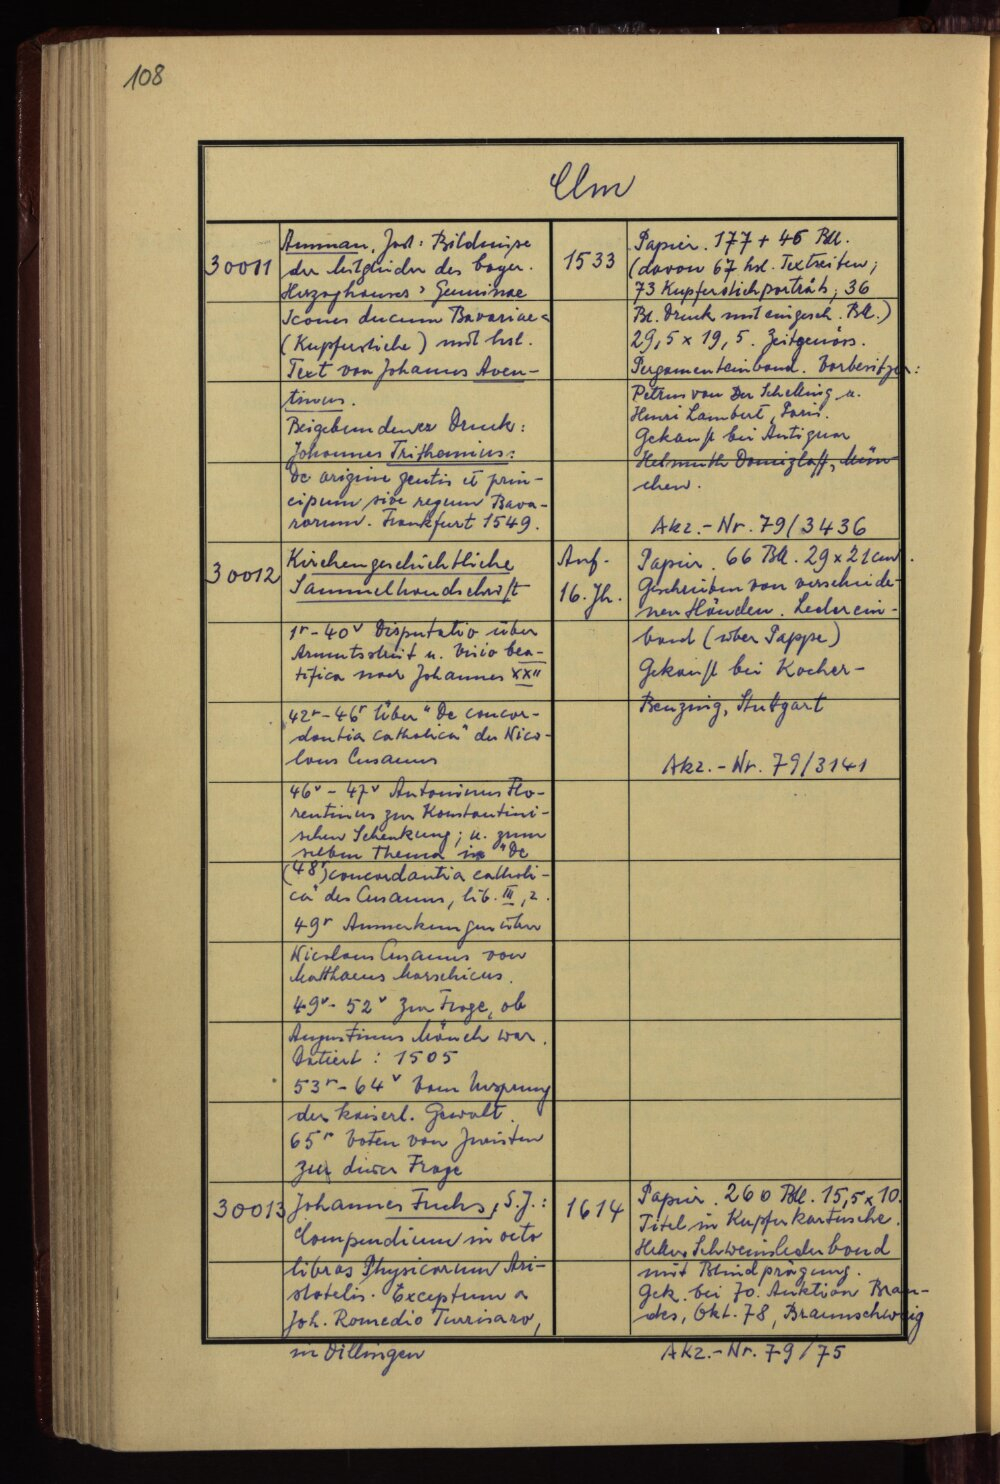 108
Clm
30011
Amman, Jost: Bildnisse
der Mitglieder des bayer.
Herzoghauses > Genuinae
Icones ducum Bavariae <
(Kupferstiche) mit hsl.
Text von Johannes Aven-
tinus.
Beigebundener Druck:
Johannes Trithemius:
De origine gentis et prin-
cipum sive regum Bava-
rorum. Frankfurt 1549.
1533
Papier. 177 + 45 Bll.
(davon 67 hsl. Textseiten;
73 Kupferstichporträts; 36
Bl. Druck mit eingesch. Bll.)
29,5 x 19,5. Zeitgenöss.
Pergamenteinband. Vorbesitzer:
Petrus van Der Schelling u.
Henri Lambert, Paris.
Gekauft bei Antiquar
Helmuth Domizlaff, Mün-
chen.
Akz.-Nr. 79/3436
30012
Kirchengeschichtliche
Sammelhandschrift
1r-40v Disputatio über
Armutsstreit u. Visio bea-
tifica nach Johannes XXII
42r-46r Über "De concor-
dantia catholica" des Nico-
laus Cusanus
46v-47v Antoninus Flo-
rentinus zur Konstantini-
schen Schenkung; u. zum
selben Thema in "De
(48r) concordantia catholi-
ca" des Cusanus, lib. III, 2.
49r Anmerkungen über
Nicolaus Cusanus von
Matthaeus Marschicus.
49v-52v Zur Frage, ob
Augustinus Mönch war.
Datiert: 1505
53r-64v Vom Ursprung
der kaiserl. Gewalt.
65r Voten von Juristen
zur dieser Frage
Anf.
16. Jh.
Papier. 66 Bll. 29 x 21 cm.
Geschrieben von verschiede-
nen Händen. Lederein-
band (über Pappe)
Gekauft bei Kocher-
Benzing, Stuttgart
Akz.-Nr. 79/3141
30013
Johannes Fuchs, S.J.:
Compendium in octo
libros Physicorum Ari-
stotelis. Exceptum a
Joh. Romedio Turrisaro,
in Dillingen
1614
Papier. 260 Bll. 15,5 x 10.
Titel in Kupferkartusche.
Heller Schweinslederband
mit Blindprägung.
Gek. bei 70. Auktion Bran-
des, Okt. 78, Braunschweig
Akz.-Nr. 79/75